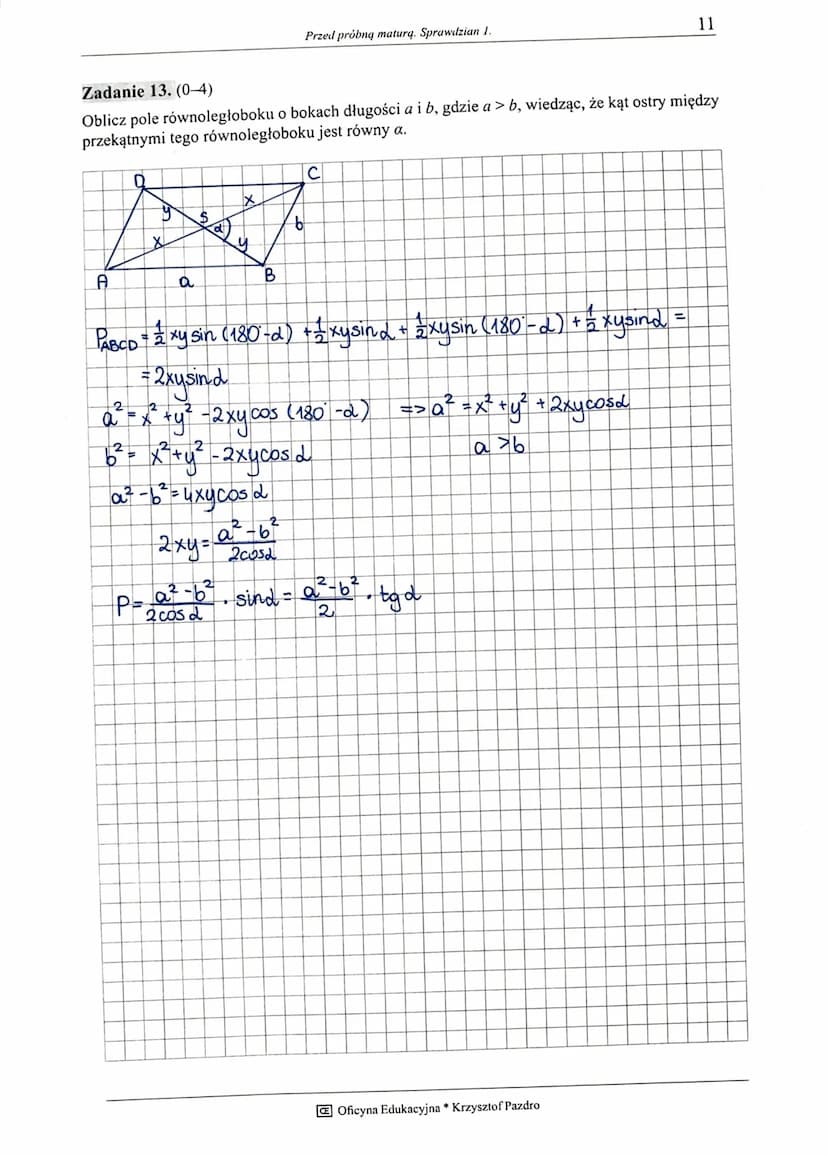 Przed próbną maturą. Sprawdzian 1.
11
Zadanie 13. (0–4)
Oblicz pole równoległoboku o bokach długości a i b, gdzie a > b, wiedząc, że kąt ostry między
przekątnymi tego równoległoboku jest równy α.
D C
y S x
x α y b
A a B
P_ABCD = 1/2 xy sin (180°-α) + 1/2 xy sin α + 1/2 xy sin (180°-α) + 1/2 xy sin α =
= 2xy sin α
a² = x² + y² - 2xy cos (180° - α) => a² = x² + y² + 2xy cos α
b² = x² + y² - 2xy cos α a > b
a² - b² = 4xy cos α
2xy = (a² - b²)/(2cos α)
P = (a² - b²)/(2cos α) · sin α = (a² - b²)/2 · tg α
OE Oficyna Edukacyjna * Krzysztof Pazdro